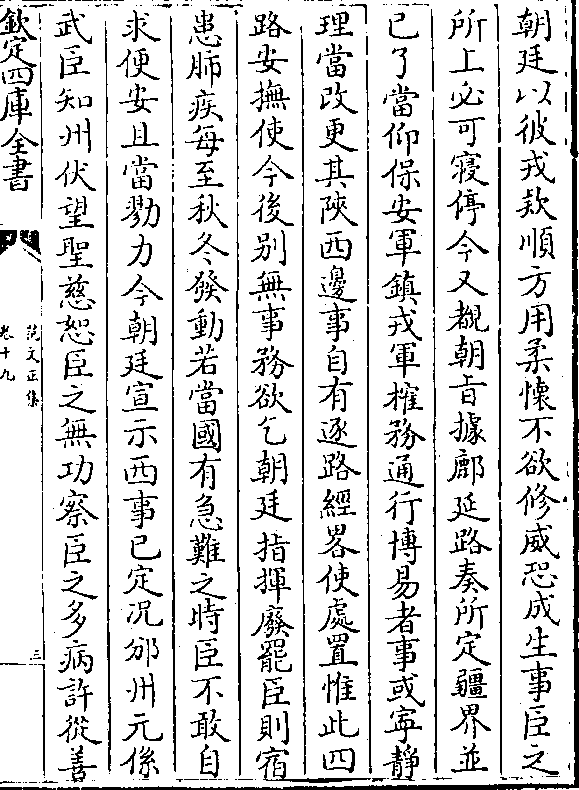 朝廷以彼戎欵順方用柔懷不欲修威恐成生事臣之
所上必可寢停今又覩朝旨據鄜延路奏所定疆界並
已了當仰保安軍鎮戎軍榷務通行博易者事或寧靜
理當改更其陜西邊事自有逐路經畧使處置惟此四
路安撫使今後别無事務欲乞朝廷指揮廢罷臣則宿
患肺疾每至秋冬發動若當國有急難之時臣不敢自
求便安且當勠力今朝廷宣示西事已定况邠州元係
武臣知州伏望聖慈恕臣之無功察臣之多病許從善
欽定四庫全書
范文正集
卷十九
三